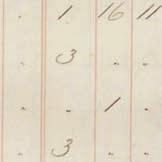 . 1 16 11
. 3 . .
. . 1 .
. 3 . .